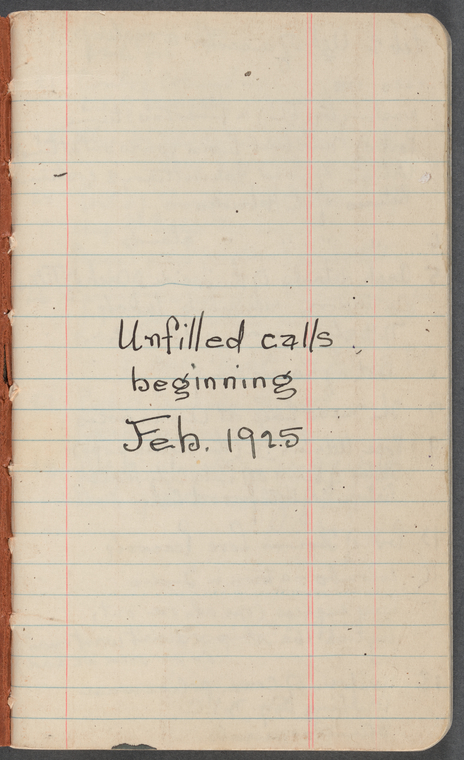 Unfilled calls
beginning
Feb. 1925